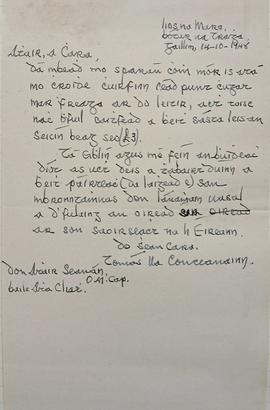 Lios na Mara,
Bóthar na Trágha,
Gaillimh, 14-10-1948
Athair, a Chara,
Dá mbeadh mo sparán chomh mór is atá
mo chroidhe chuirfinn céad punt chugat
mar fhreagra ar do leitir, acht toisc
nach bhfuil caithfead a bheith sásta le
seicín beag seo (£3).
Tá Eiblín agus mé féin an-bhuidheach
díot as ucht deis a thabhairt dúinn a
bheith páirteach (dá laighead é) san
mbronntanas don Lánamhain uasal
a d'fhulaing an oiread
ar son saoirseacht na h Éireann.
Do shean chara.
Tomás Ua Concheanainn.
Don Athair Seanán,
O.M. Cap.
Baile Átha Cliath.